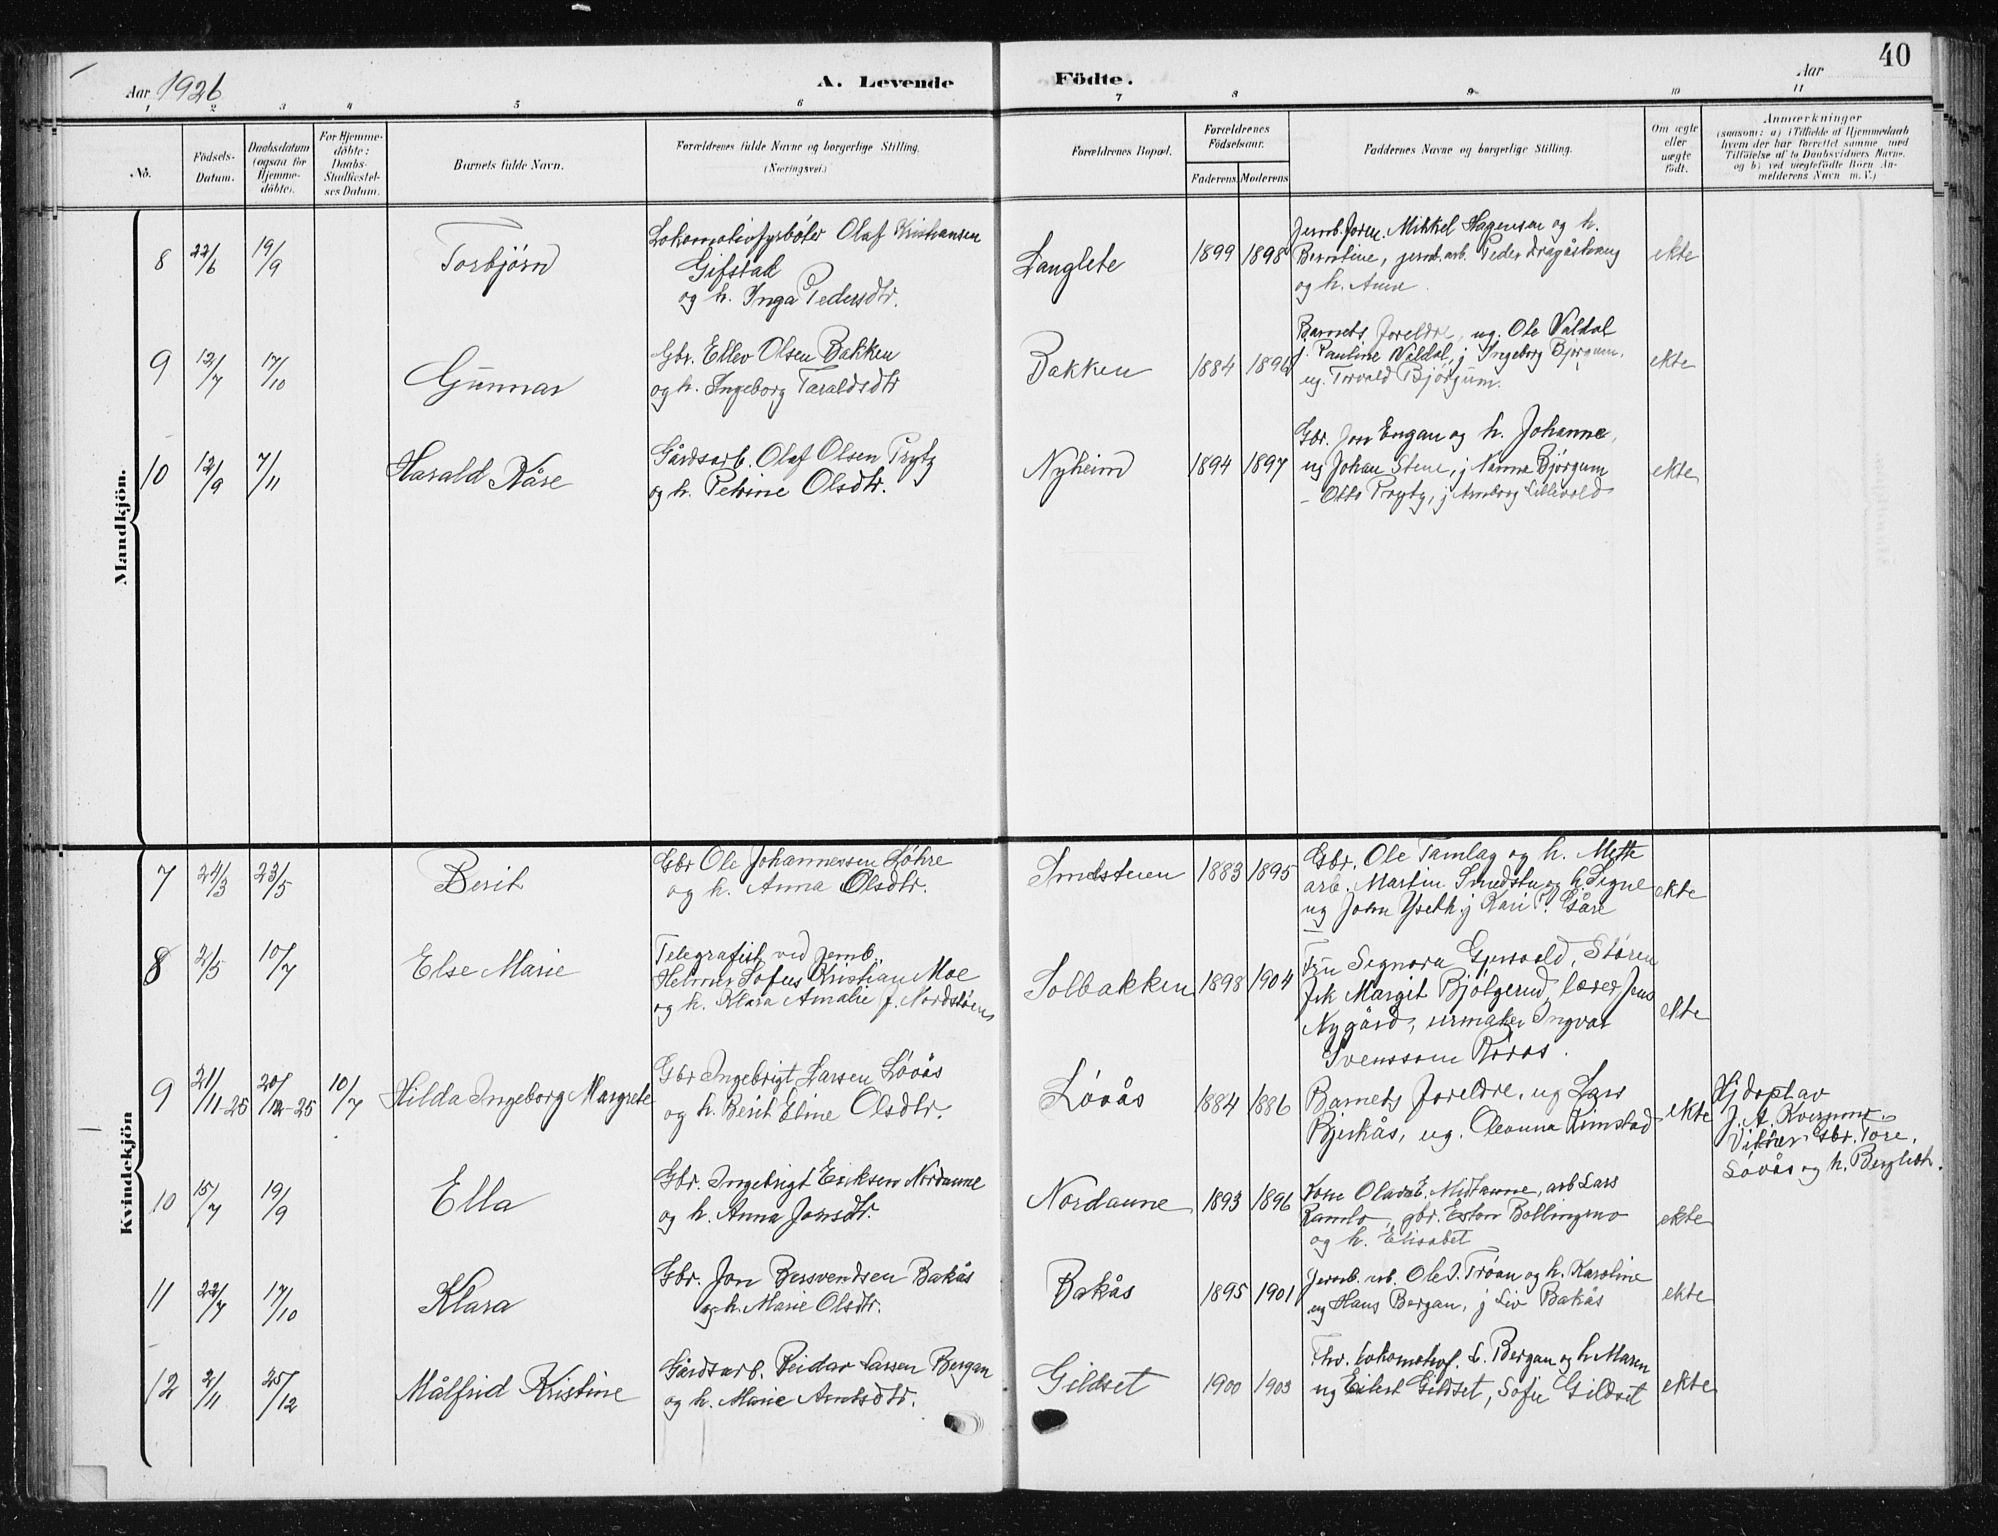 Aar 1926
A. Levende Födte.
Aar
40
1 2 3 4 5 6 7 8 9 10 11
No.
Födsels-Datum.
Daabsdatum (ogsaa for Hjemme-döbte).
For Hjemme-döbte: Daabs-Stadfæstel-ses Datum.
Barnets fulde Navn.
Forældrenes fulde Navne og borgerlige Stilling. (Næringsvei.)
Forældrenes Bopæl.
Forældrenes Födselsaar.
Faderens. Moderens
Faddernes Navne og borgerlige Stilling.
Om ægte eller uægte födt.
Anmærkninger
(saasom: a) i Tilfælde af Hjemmedaab
hvem der har forrettet samme med
Tilföielse af to Daabsvidners Navne,
og b) ved uægtefödte Börn An-
melderens Navn m. V.)
Mandkjön.
8 22/6 19/9 Torbjørn
Lokomotivfyrbøter Olaf Kristiansen
Gifstad
og h. Inga Pedersdtr.
Langlete 1899 1898
Jernb.form. Mikkel Hagensen og h.
Berntine, jernb.arb. Peder
og h. Anne.
ekte
9 12/7 17/10 Gunnar
Gbr. Ellev Olsen Bakken
og h. Ingeborg Taraldsdtr
Bakken 1884 1896
Barnets foreldre, ug. Ole Valdal
j. Pauline Valdal, j Ingeborg Bjørgum,
ug. Torvald Bjørgum.
ekte
10 12/9 7/11 Harald Kåre
Gårdsarb. Olaf Olsen Prytz
og h. Petrine Olsdtr.
Nyheim 1894 1897
Gbr. Jon Engan og h. Johanne,
ug Johan Stene, j Nanna Bjørgum
- Otto Prytz, j Arnborg Lillevold
ekte
Kvindekjön
7 24/3 23/5 Berit
Gbr Ole Johannessen Løhre
og h. Anna Olsdtr.
Smedsteien 1883 1895
Gbr. Ole Tamlag og h. Mette
arb. Martin Smedstu og h. Signe
ug John Yseth j Kari P. Gåre
ekte
8 2/5 10/7 Else Marie
Telegrafist ved jernb.
Helmer Sofus Kristian Moe
og h. Klara Amalie f. Nordstøen
Solbakken 1898 1904
Fru Signora Støren
frk Margit Bjølgerud, lærer Jens
Nygård, urmaker Ingvar
Svensson Røros.
ekte
9 21/11-25 20/12-25 10/7 Hilda Ingeborg Margrete
Gbr Ingebrigt Larsen Løvås
og h. Berit Eline Olsdtr.
Løvås 1884 1886
Barnets foreldre, ug Lars
Bjerkås, ug. Oleanna Rimstad
ekte
Hjdøpt av
J. A. Kvernmo
Vikvær Gbr. Tore
Løvås og h. Bergliot.
10 15/7 19/9 Ella
Gbr. Ingebrigt Eriksen Nordaune
og h. Anna Jonsdtr.
Nordaune 1893 1896
Kone Olava E. Midtaune, arb Lars
Ramlo, gbr. Esten Bollingmo
og h. Elisabet
ekte
11 22/7 17/10 Klara
Gbr. Jon Bersvendsen Bakås
og h. Marie Olsdtr.
Bakås 1895 1901
Jernb. arb. Ole J. Trøan og h. Karoline
ug Hans Bergan, j Liv Bakås
ekte
12 2/11 25/12 Målfrid Kristine
Gårdsarb. Reidar Larsen Bergan
og h. Marie Arntsdtr.
Gildset 1900 1903
Fhv. lokomotivf. L. Bergan og h Maren
ug Eilert Gildset, Sofie Gildset
ekte